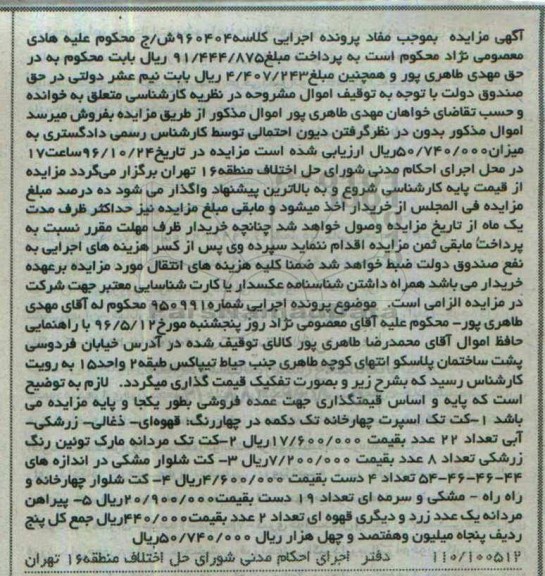 آگهی مزایده بموجب مفاد پرونده اجرایی کلاسه۹۶۰۴۰۴ش/ج محکوم علیه هادی
معصومی نژاد محکوم است به پرداخت مبلغ۹۱/۴۴۴/۸۷۵ ریال بابت محکوم به در
حق مهدی طاهری پور و همچنین مبلغ۴/۴۰۷/۲۴۳ ریال بابت نیم عشر دولتی در حق
صندوق دولت با توجه به توقیف اموال مشروحه در نظریه کارشناسی متعلق به خوانده
و حسب تقاضای خواهان مهدی طاهری پور اموال مذکور از طریق مزایده بفروش میرسد
اموال مذکور بدون در نظرگرفتن دیون احتمالی توسط کارشناس رسمی دادگستری به
میزان۵۰/۷۴۰/۰۰۰ریال ارزیابی شده است مزایده در تاریخ۹۶/۱۰/۲۴ساعت۱۷
در محل اجرای احکام مدنی شورای حل اختلاف منطقه۱۶ تهران برگزار می‌گردد مزایده
از قیمت پایه کارشناسی شروع و به بالاترین پیشنهاد واگذار می شود ده درصد مبلغ
مزایده فی المجلس از خریدار اخذ میشود و مابقی مبلغ مزایده نیز حداکثر ظرف مدت
یک ماه از تاریخ مزایده وصول خواهد شد چنانچه خریدار ظرف مهلت مقرر نسبت به
پرداخت مابقی ثمن مزایده اقدام ننماید سپرده وی پس از کسر هزینه های اجرایی به
نفع صندوق دولت ضبط خواهد شد ضمنا کلیه هزینه های انتقال مورد مزایده برعهده
خریدار می باشد همراه داشتن شناسنامه عکسدار یا کارت شناسایی معتبر جهت شرکت
در مزایده الزامی است. موضوع پرونده اجرایی شماره۹۵۰۹۹۱ محکوم له آقای مهدی
طاهری پور- محکوم علیه آقای معصومی نژاد روز پنجشنبه مورخ۹۶/۵/۱۲ با راهنمایی
حافظ اموال آقای محمدرضا طاهری پور کالای توقیف شده در آدرس خیابان فردوسی
پشت ساختمان پلاسکو انتهای کوچه طاهری جنب حیاط تیپاکس طبقه۲ واحد۱۵ به رویت
کارشناس رسید که بشرح زیر و بصورت تفکیک قیمت گذاری میگردد. لازم به توضیح
است که پایه و اساس قیمتگذاری جهت عمده فروشی بطور یکجا و پایه مزایده می
باشد ۱-کت تک اسپرت چهارخانه تک دکمه در چهاررنگ: قهوه‌ای- ذغالی- زرشکی-
آبی تعداد ۲۲ عدد بقیمت ۱۷/۶۰۰/۰۰۰ریال ۲-کت تک مردانه مارک توئین رنگ
زرشکی تعداد ۸ عدد بقیمت ۷/۲۰۰/۰۰۰ریال ۳- کت شلوار مشکی در اندازه های
۵۴-۴۶-۴۶-۴۴ تعداد ۴ دست بقیمت ۴/۶۰۰/۰۰۰ریال ۴- کت شلوار چهارخانه و
راه راه - مشکی و سرمه ای تعداد ۱۹ دست بقیمت۲۰/۹۰۰/۰۰۰ریال ۵- پیراهن
مردانه یک عدد زرد و دیگری قهوه ای تعداد ۲ عدد بقیمت۴۴۰/۰۰۰ریال جمع کل پنج
ردیف پنجاه میلیون وهفتصد و چهل هزار ریال ۵۰/۷۴۰/۰۰۰ریال
۱۱۰/۱۰۰۵۱۲ دفتر اجرای احکام مدنی شورای حل اختلاف منطقه۱۶ تهران